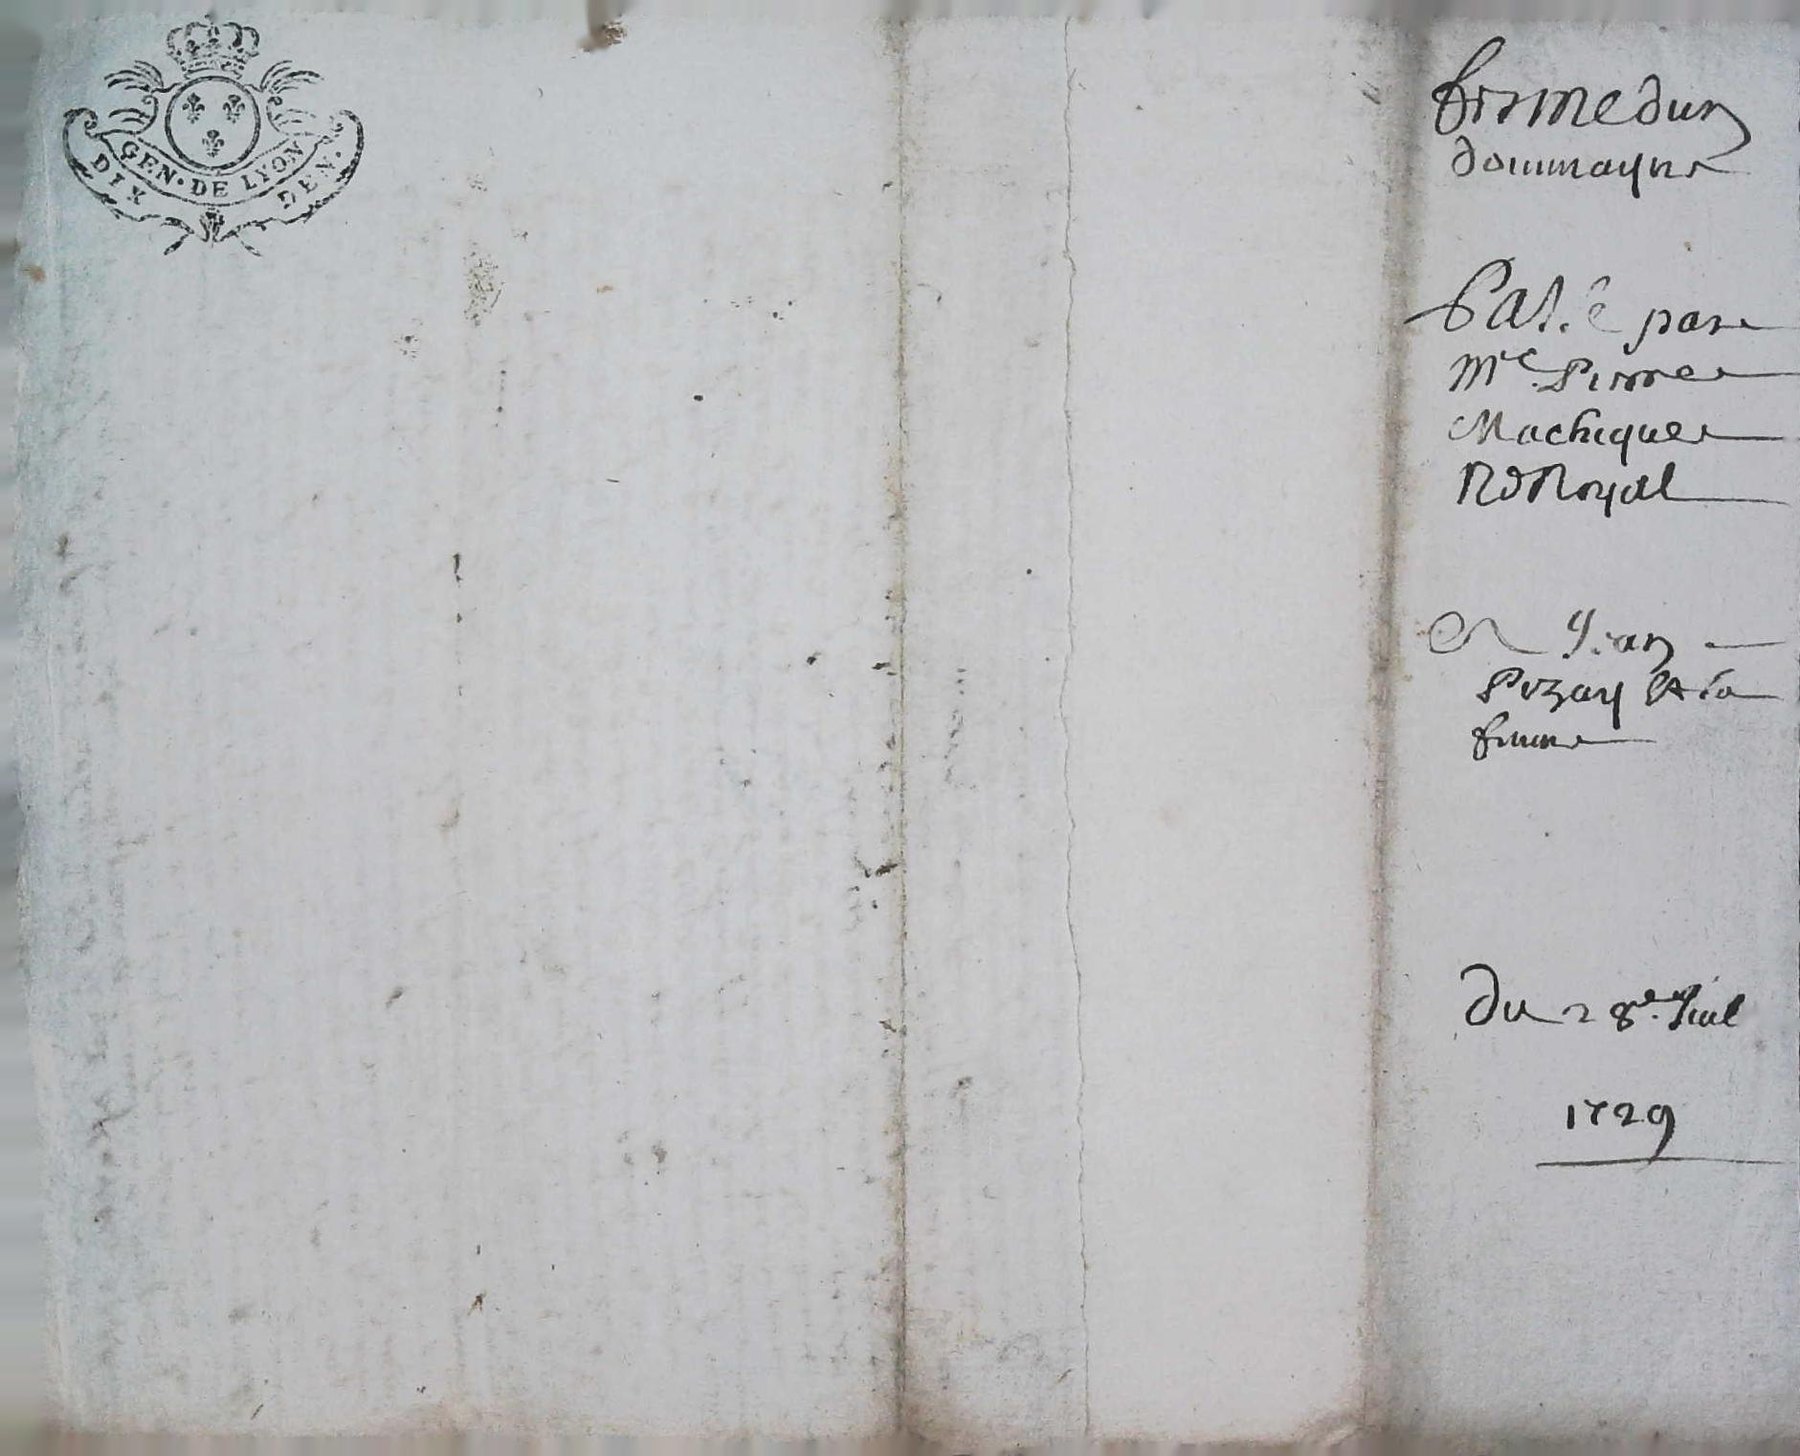 GEN. DE LYON
DIX DEN.
ferme dun
dommayne
par
Me. Pierre
Machique
Nd Royal
A Jean
Pezay & sa
femme
Du 28e. Juil
1729